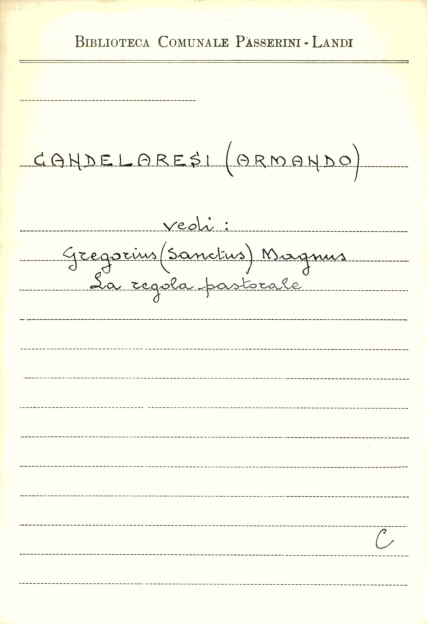 BIBLIOTECA COMUNALE PASSERINI - LANDI
CANDELARESI (ARMANDO)
vedi :
Gregorius (Sanctus) Magnus
La regola pastorale
C